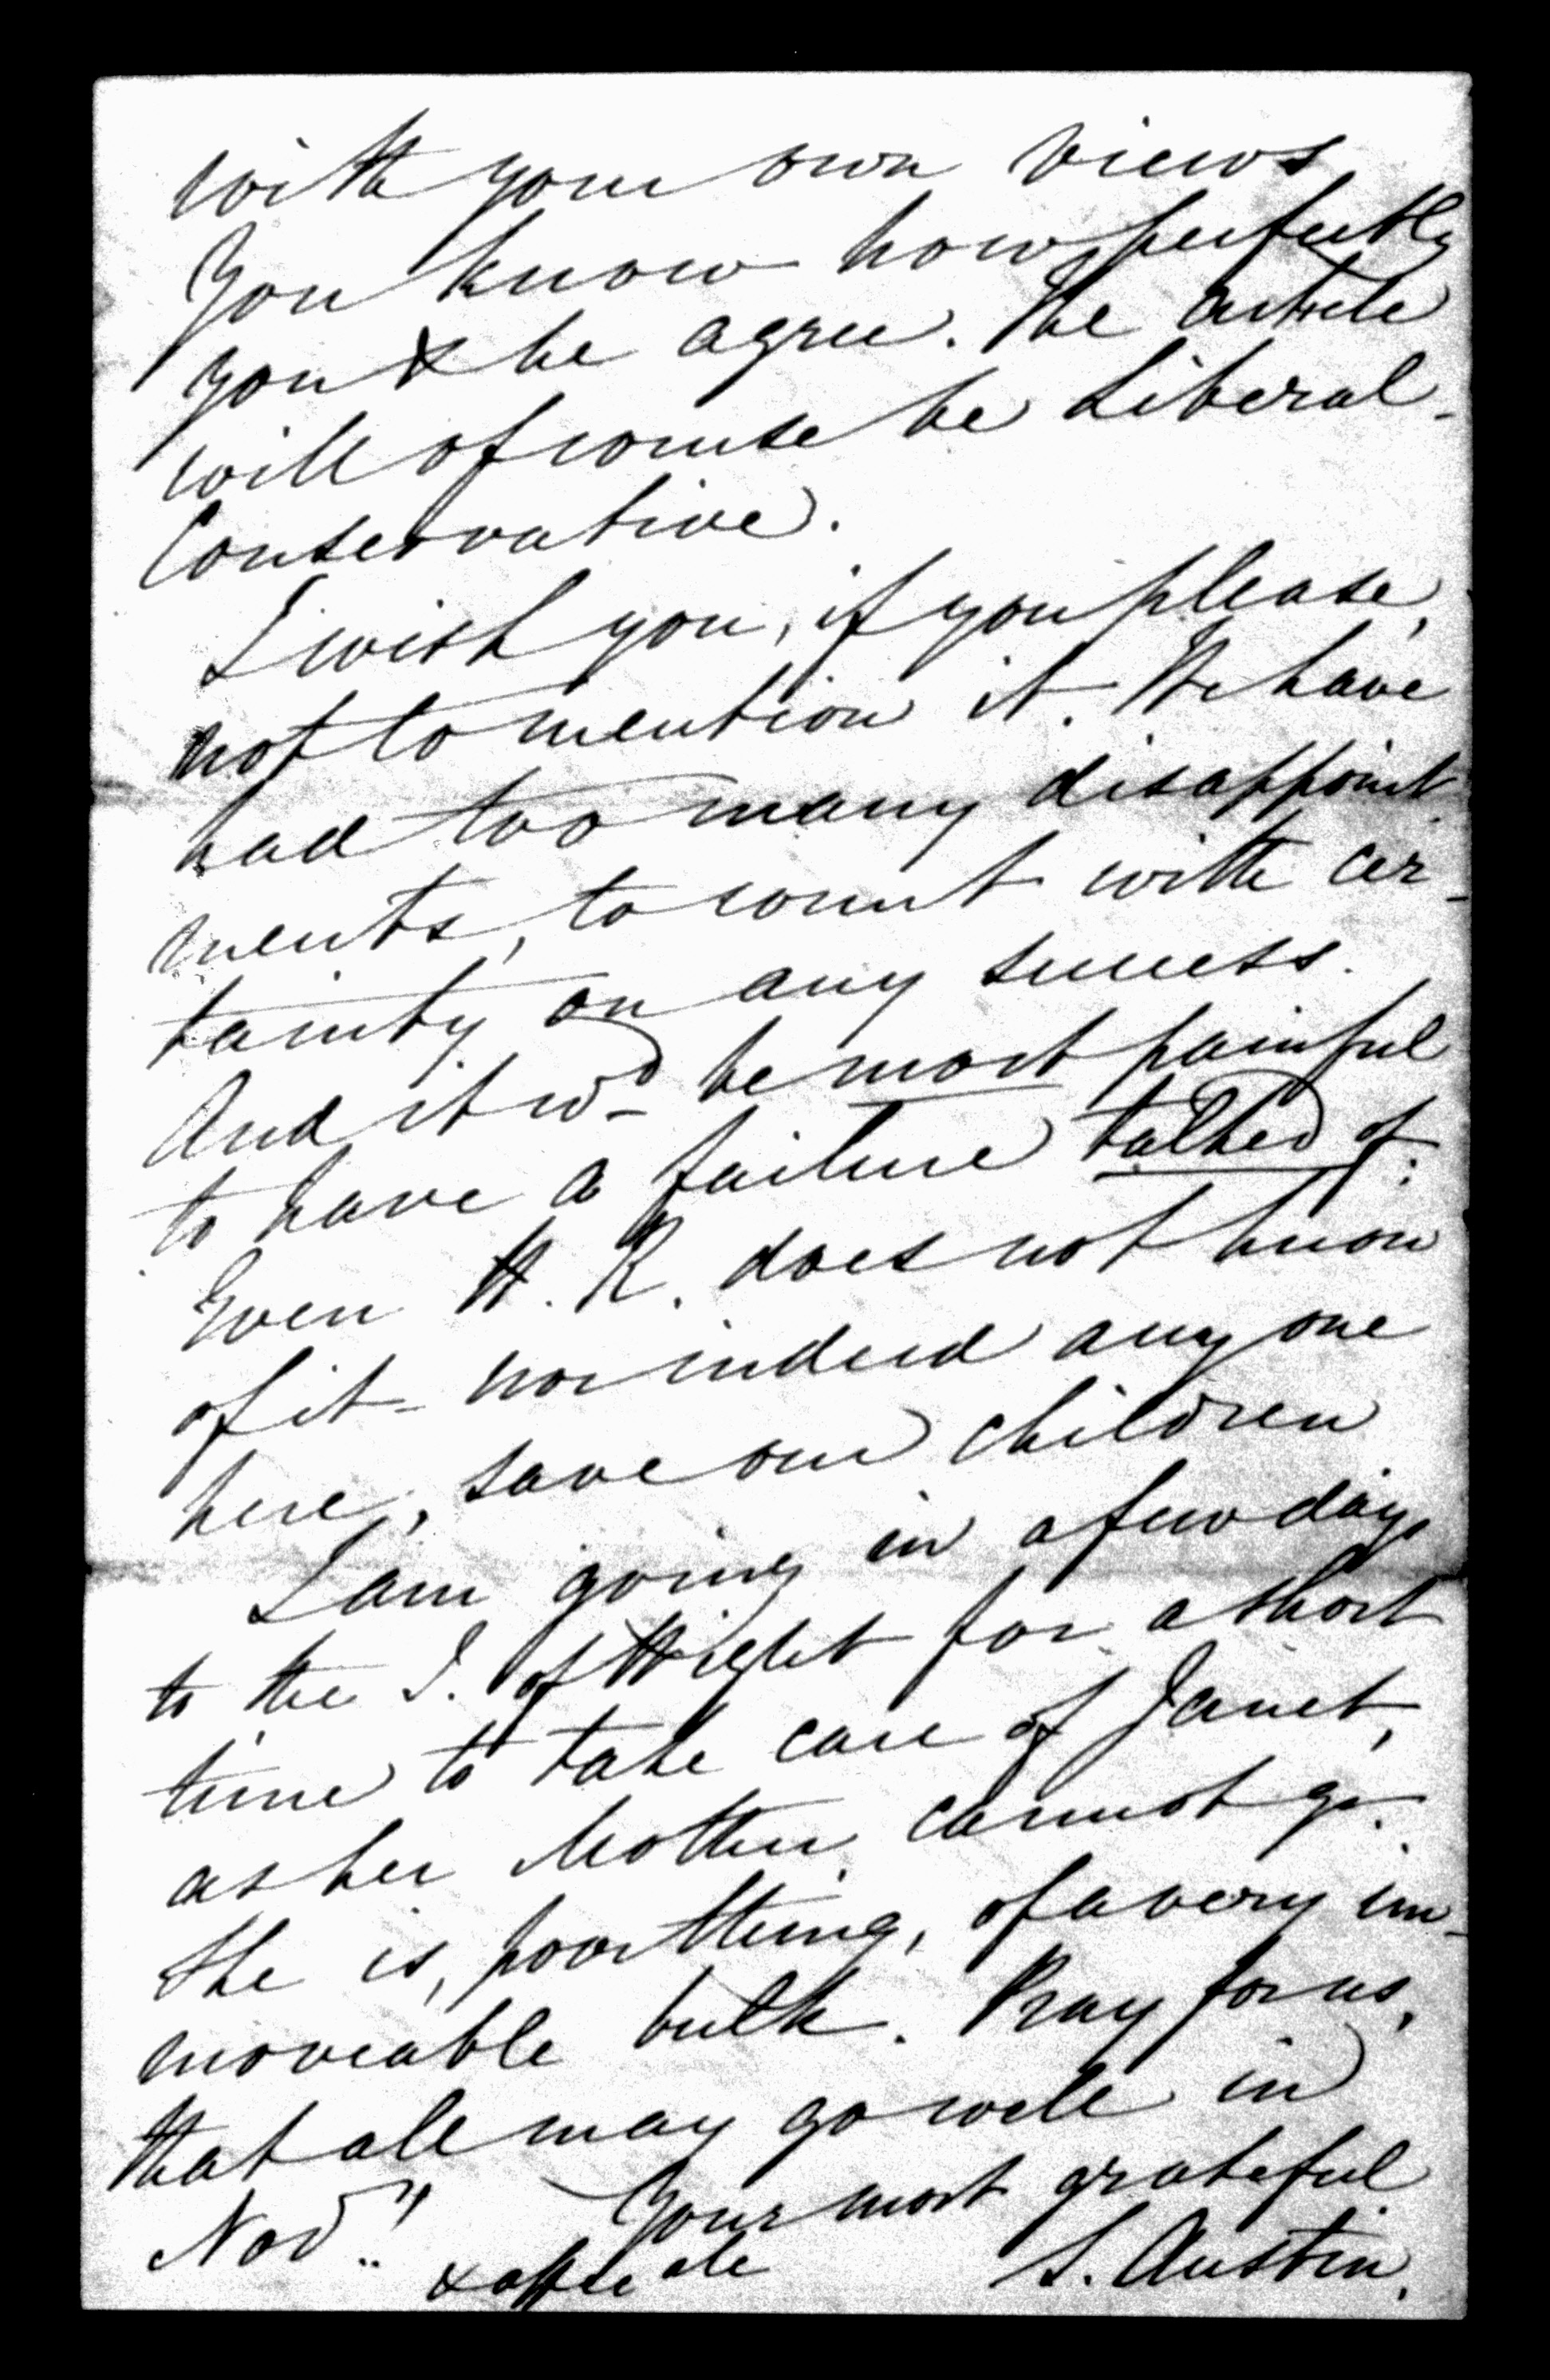 with your own views
You know how perfectly
you & he agree. The article
will of course be Liberal-
Conservative.
I wish you, if you please,
not to mention it. We have
had too many disappoint
ments, to count with cer-
tainty on any success.
And it wd be most painful
to have a failure talked of:
Even H. R. does not know
of it - nor indeed any one
here, save our children
I am going in a few days
to the I. of Wight for a short
time to take care of Janet,
as her Mother cannot go.
She is, poor thing, of a very im-
moveable bulk. Pray for us,
that all may go well in
Novr. Your most grateful
& affte S. Austin.